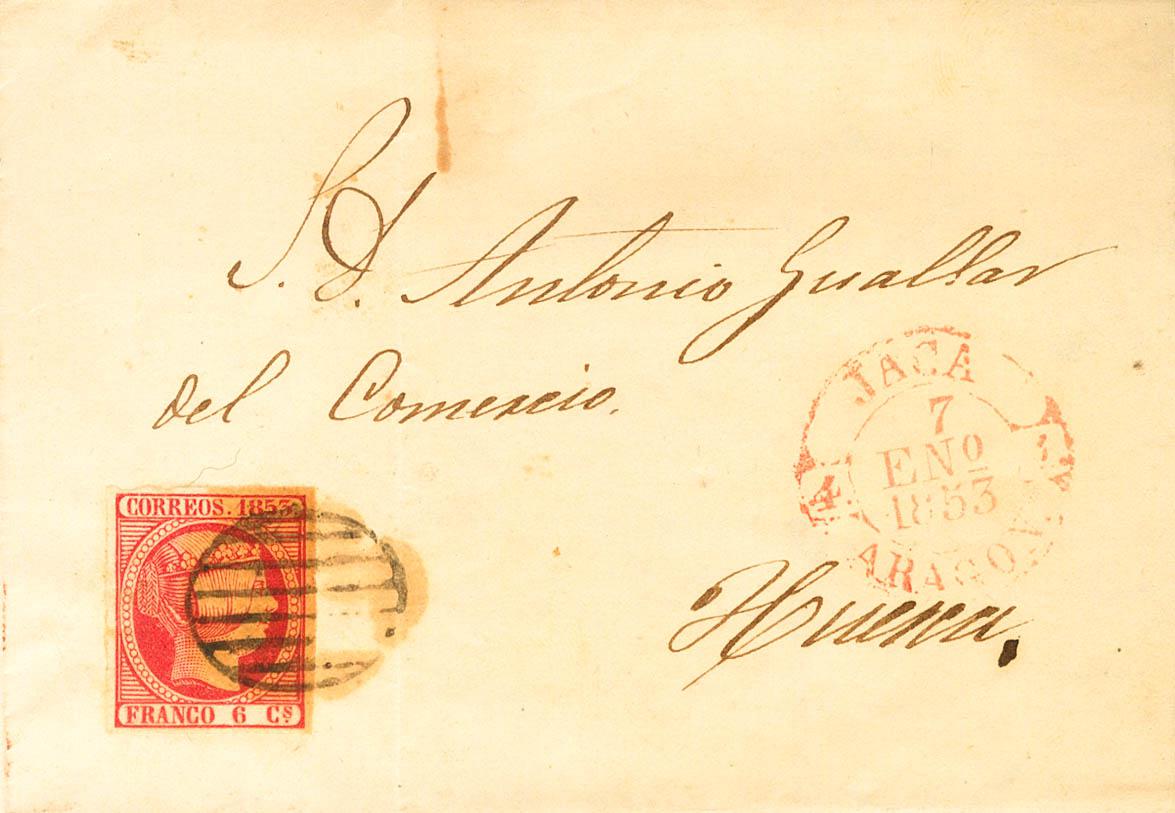 S. D. Antonio Guallar
del Comercio.
JACA
7
ENº
1853
ARAGON
CORREOS. 1853.
FRANCO 6 Cs
Huesca,